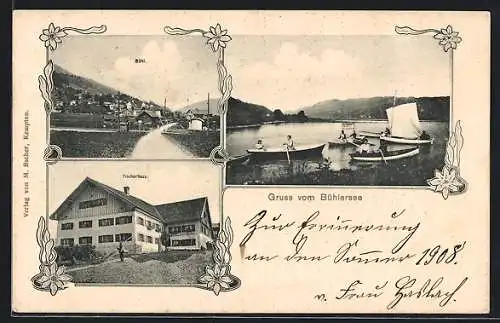 Bühl.
Fischerhaus.
Verlag von M. Sacher, Kempten.
Gruss vom Bühlersee
Zur Erinnerung
an den Sommer 1908.
v. Frau Haslach